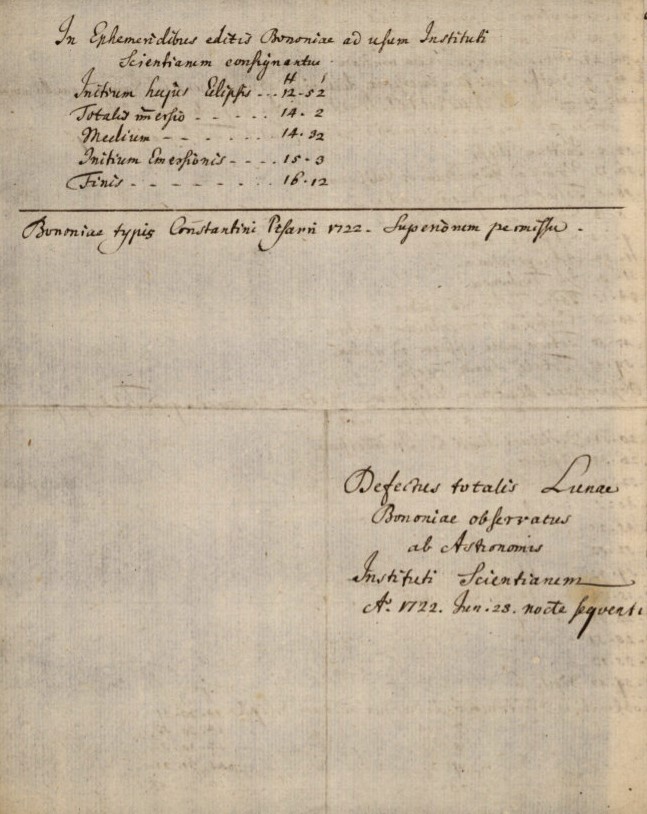 In Ephemeridibus editis Bononiae ad usum Instituti
Scientiarum consignantur
H '
Initium hujus Eclipsis - - - 12-52
Totalis im̄ersio - - - - - 14-2
Medium - - - - - - 14-32
Initium Emersionis - - - - 15-3
Finis - - - - - - - - 16-12
Bononiae typis Constantini Pisarri 1722. Superiorum permissu.
Defectus totalis Lunae
Bononiae observatus
ab Astronomis
Instituti Scientiarum
Aº. 1722. Jun. 28. nocte sequenti